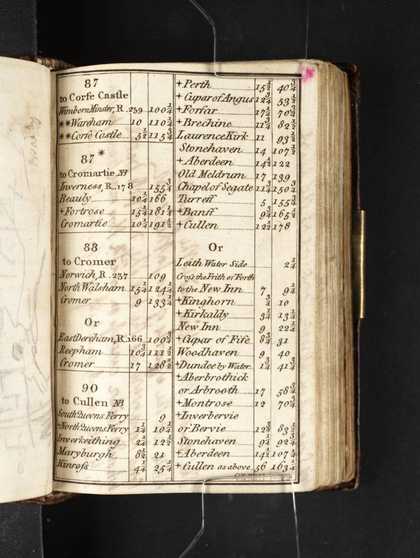 87
to Corfe Castle
Wimborn Minster, R. 239 100¼
**Wareham 10 110¼
**Corfe Castle 5½ 115¾
87*
to Cromartie
Inverness, R. 178 155¾
Beauly 10¼ 166
+Fortrose 15¼ 181¼
Cromartie 10¼ 191½
88
to Cromer
Norwich, R. 237 109
North Walsham 15¼ 124¼
Cromer 9 133¼
Or
East Dereham, R. 166 100¾
Reepham 10¾ 111½
Cromer 17 128½
90
to Cullen
South Queens Ferry 9
+North Queens Ferry 1¼ 10¼
Inverkeithing 2¼ 12½
Maryburgh 8½ 21
Kinross 4¼ 25¼
+Perth 15½ 40¾
+Cupar of Angus 12¾ 53½
+Forfar 17½ 70¾
+Brechine 11¾ 82½
Laurence Kirk 11 93½
Stonehaven 14 107½
+Aberdeen 14½ 122
Old Meldrum 17 139
Chapel of Segate 11¾ 150¾
Turreff 5 155¾
+Banff 9¾ 165½
+Cullen 12½ 178
Or
Leith Water Side 2¼
Cross the Frith of Forth
to the New Inn 7 9¼
+Kinghorn ¾ 10
+Kirkaldy 3¼ 13¼
New Inn 9 22¼
+Cupar of Fife 8¾ 31
Woodhaven 9 40
+Dundee by Water 1¾ 41¾
+Aberbrothick
or Arbrooth 17 58¾
+Montrose 12 70¾
+Inverbervie
or Bervie 12¾ 83½
Stonehaven 9¼ 92¾
+Aberdeen 14½ 107¼
+Cullen as above 56 163¼